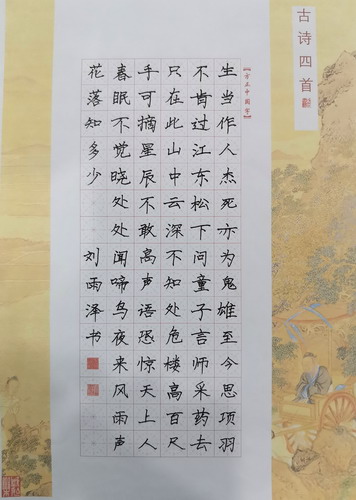 古诗四首
【方正中国字】
生当作人杰死亦为鬼雄至今思项羽
不肯过江东松下问童子言师采药去
只在此山中云深不知处危楼高百尺
手可摘星辰不敢高声语恐惊天上人
春眠不觉晓处处闻啼鸟夜来风雨声
花落知多少 刘雨泽书